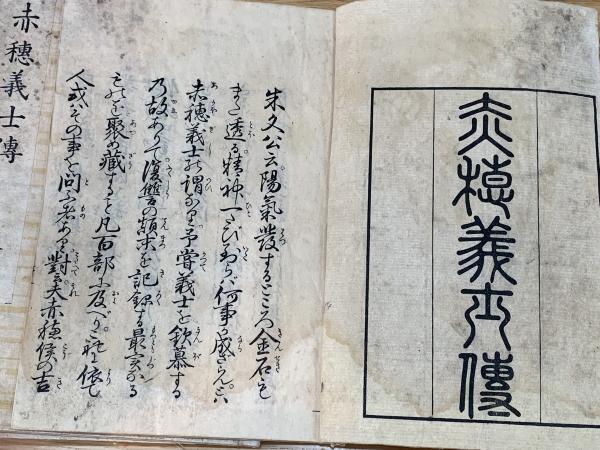 赤穗義士傳
朱文公云陽氣發するところ金石も
また透る精神一たび到らバ何事か成ざらんとハ
赤穗義士の謂なり予嘗義士を欽慕する
乃故ありて復讐の顛末を記録する最実なる
ものを聚め藏すること凡百部に及べり依て
人或ハその事を問ふ者あり對夫赤穗侯の吉
赤穗義士傳